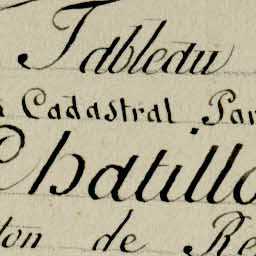 Tableau
Cadastral Par
Chatillo
ton de Re